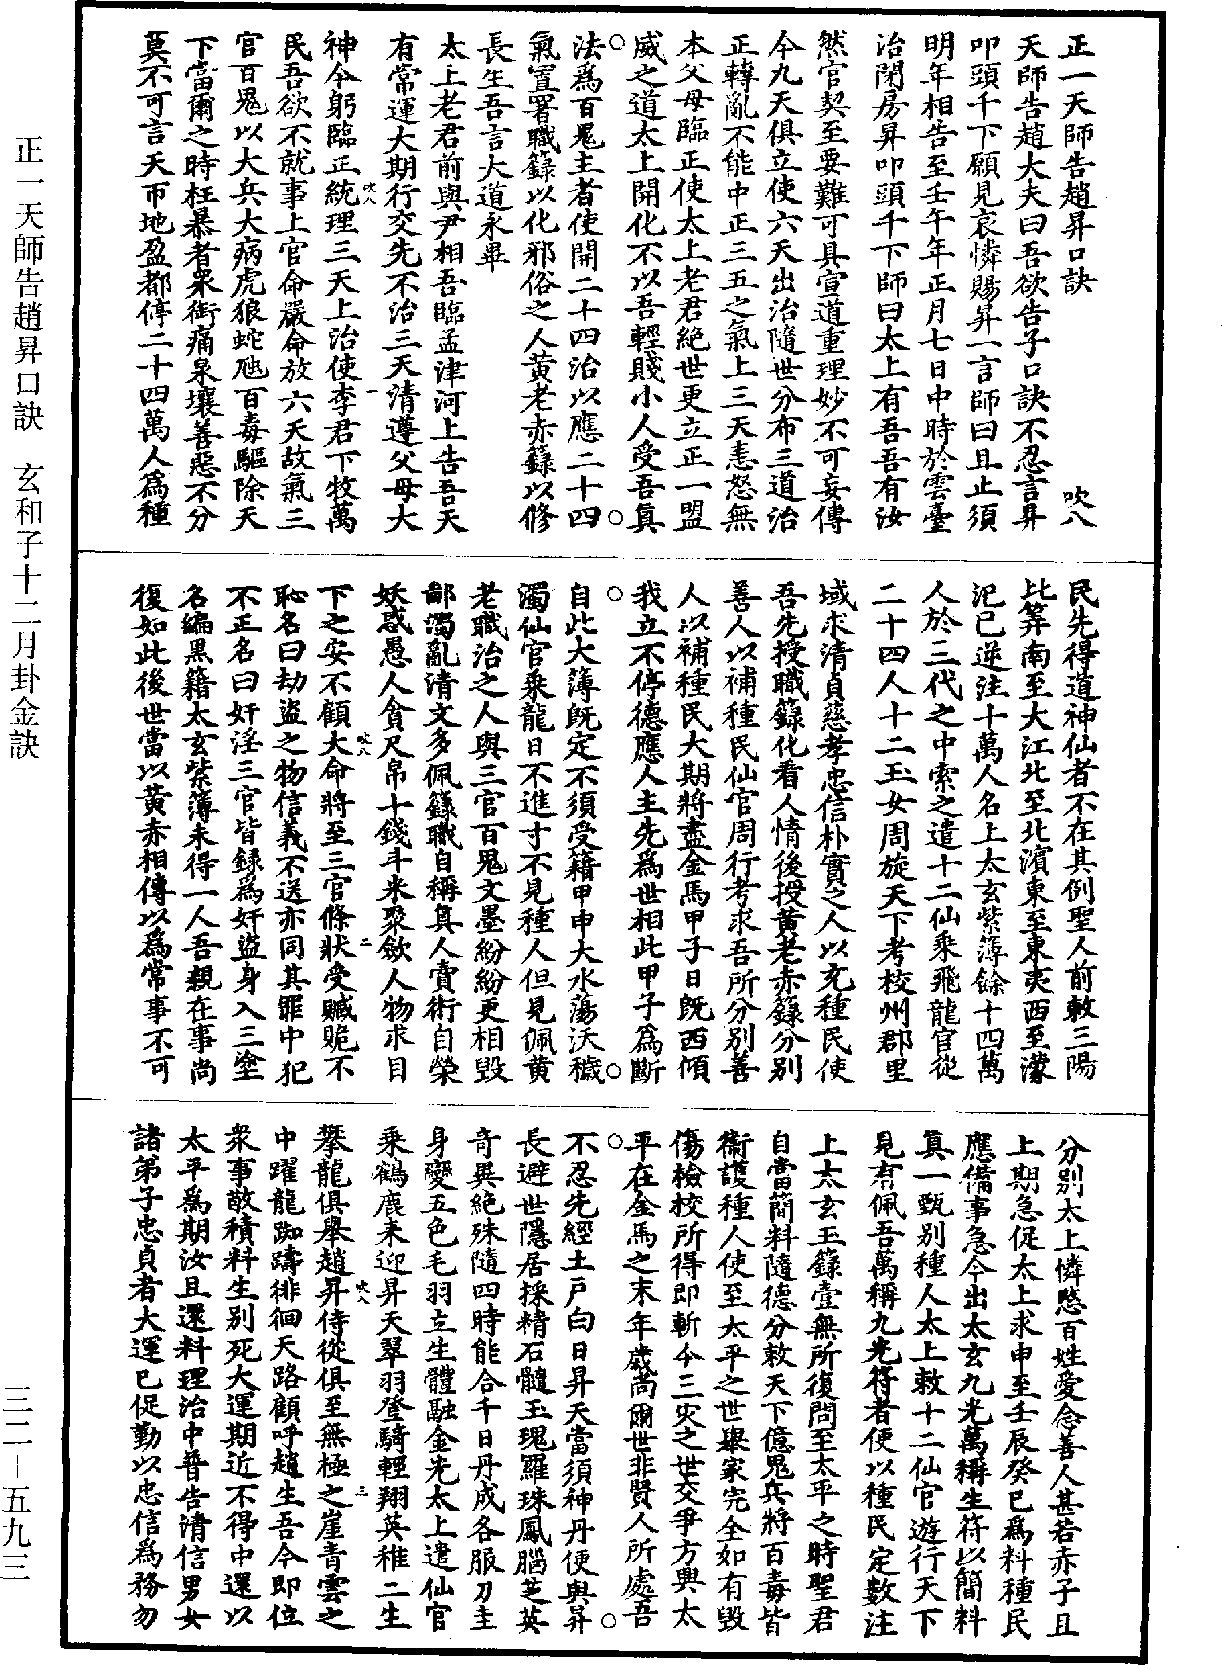 正一天師告趙昇口訣　吹八
天師告趙大夫曰吾欲告子口訣不忍言昇
叩頭千下願見哀憐賜昇一言師曰且止須
明年相告至壬午年正月七日中時於雲臺
治閉房昇叩頭千下師曰太上有吾吾有汝
然官契至要難可具宣道重理妙不可妄傳
今九天俱立使六天出治隨世分布三道治
正轉亂不能中正三五之氣上三天恚怒無
本父母臨正使太上老君絕世更立正一盟
威之道太上開化不以吾輕賤小人受吾真
法為百鬼主者使開二十四治以應二十四
氣置署職籙以化邪俗之人黃老赤籙以修
長生吾言大道永畢
太上老君前與尹相吾臨孟津河上告吾天
有常運大期行交先不治三天清遵父母大
吹八　一
神今躬臨正統理三天上治使李君下牧萬
民吾欲不就事上官命嚴命放六天故氣三
官百鬼以大兵大病虎狼蛇虺百毒驅除天
下當爾之時枉暴者眾銜痛泉壤善惡不分
莫不可言天帀地盈都停二十四萬人為種
民先得道神仙者不在其例聖人前敕三陽
比筭南至大江北至北濱東至東夷西至濛
汜已逆注十萬人名上太玄紫簿餘十四萬
人於三代之中索之遣十二仙乘飛龍官從
二十四人十二玉女周旋天下考校州郡里
域求清貞慈孝忠信朴實之人以充種民使
吾先授職籙化看人情後授黃老赤籙分別
善人以補種民仙官周行考求吾所分別善
人以補種民大期將盡金馬甲子日既西傾
我立不停德應人主先為世相此甲子為斷
自此大薄既定不須受籍甲申大水蕩沃穢
濁仙官乘龍日不進寸不見種人但見佩黃
老職治之人與三官百鬼文墨紛紛更相毀
鄙濁亂清文多佩籙職自稱真人賣術自榮
妖惑愚人貪尺帛十錢斗米聚斂人物求目
吹八　二
下之安不顧大命將至三官條狀受贓賄不
恥名曰劫盜之物信義不送亦同其罪中犯
不正名曰奸淫三官皆錄為奸盜身入三塗
名編黑籍太玄紫薄未得一人吾親在事尚
復如此後世當以黃赤相傳以為常事不可
分別太上憐愍百姓愛念善人甚若赤子且
上期急促太上求申至壬辰癸巳為料種民
應備事急今出太玄九光萬稱生符以簡料
真一甄別種人太上敕十二仙官遊行天下
見有佩吾萬稱九光符者便以種民定數注
上太玄玉籙壹無所復問至太平之時聖君
自當簡料隨德分敕天下億鬼兵將百毒皆
衛護種人使至太平之世舉家完全如有毀
傷檢校所得即斬今三災之世交爭方興太
平在金馬之末年歲尚爾世非賢人所處吾
不忍先經土戶白日昇天當須神丹便與昇
長避世隱居採精石髓玉瑰羅珠鳳腦芝英
奇異絕殊隨四時能合千日丹成各服刀圭
身變五色毛羽立生體融金光太上遣仙官
乘鶴鹿來迎昇天翠羽登騎輕翔英稚二生
吹八　三
攀龍俱舉趙昇侍從俱至無極之崖青雲之
中躍龍踟躊徘徊天路顧呼趙生吾今即位
眾事散積料生別死大運期近不得中還以
太平為期汝且還料理治中普告清信男女
諸弟子忠貞者大運已促勤以忠信為務勿
正一天師告趙昇口訣　玄和子十二月卦金訣
三二－五九三